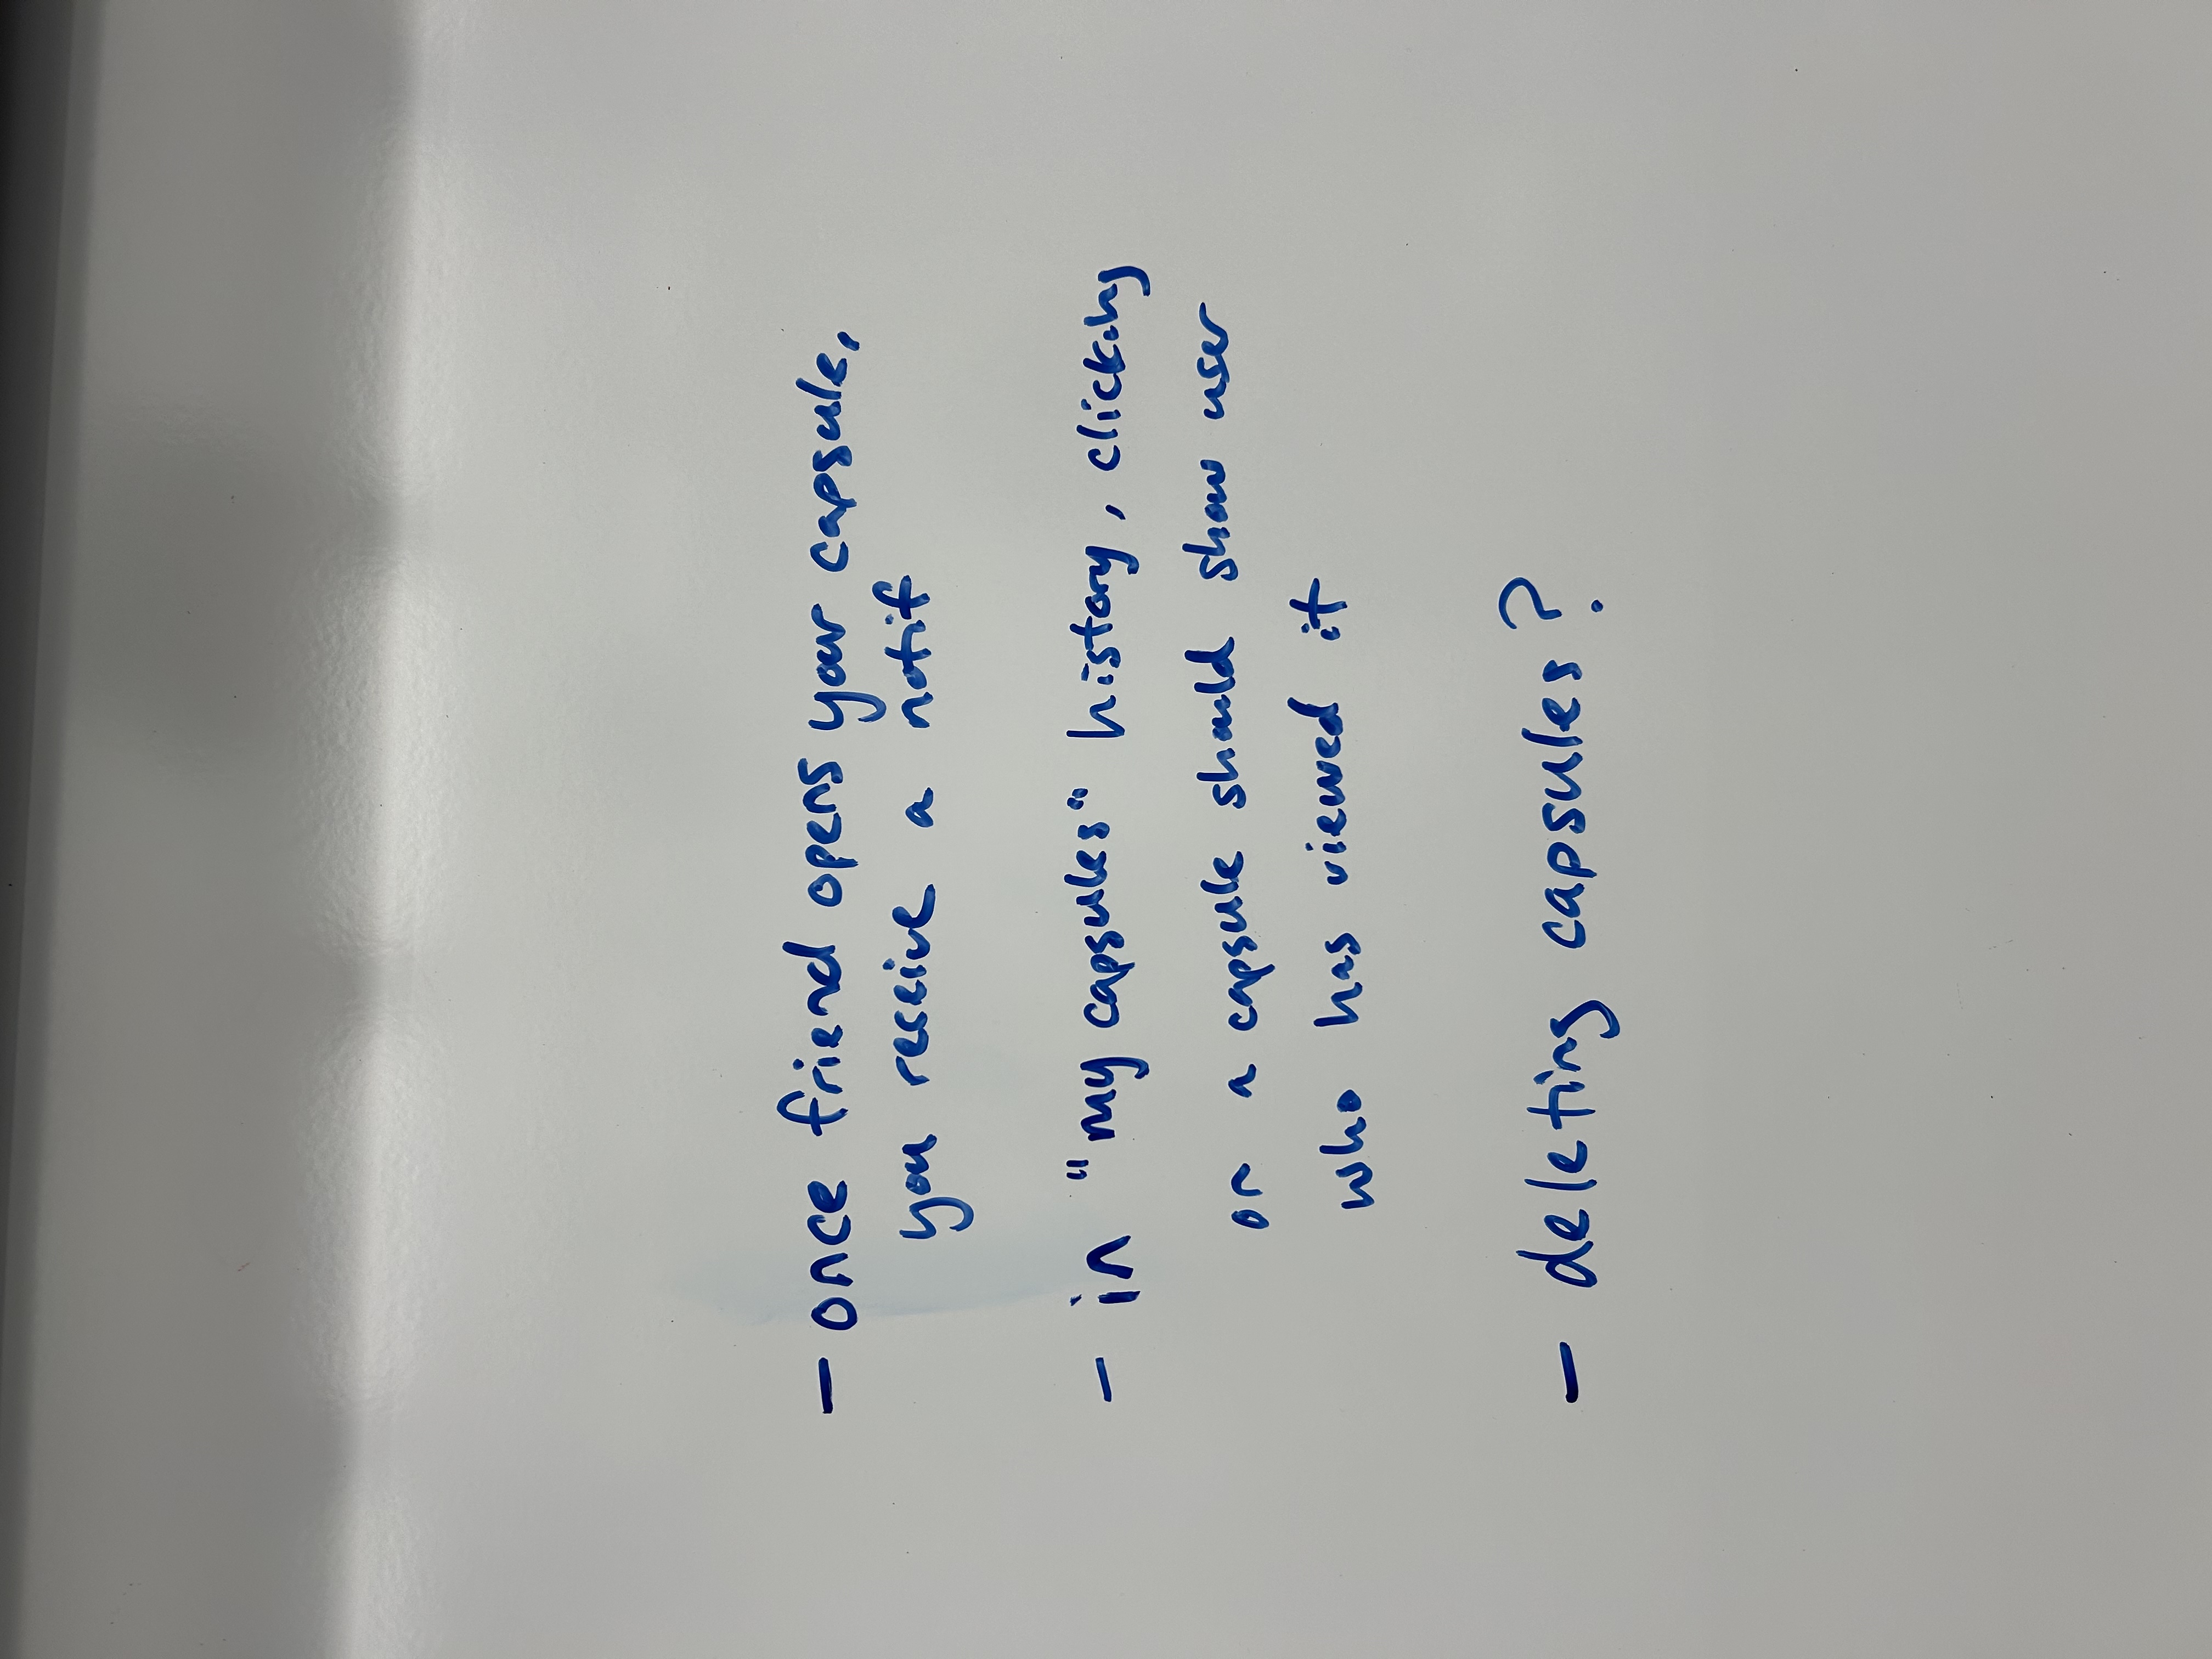 - once friend opens your capsule,
you receive a notif
- in "my capsules" history, clicking
on a capsule should show user
who has viewed it
- deleting capsules?